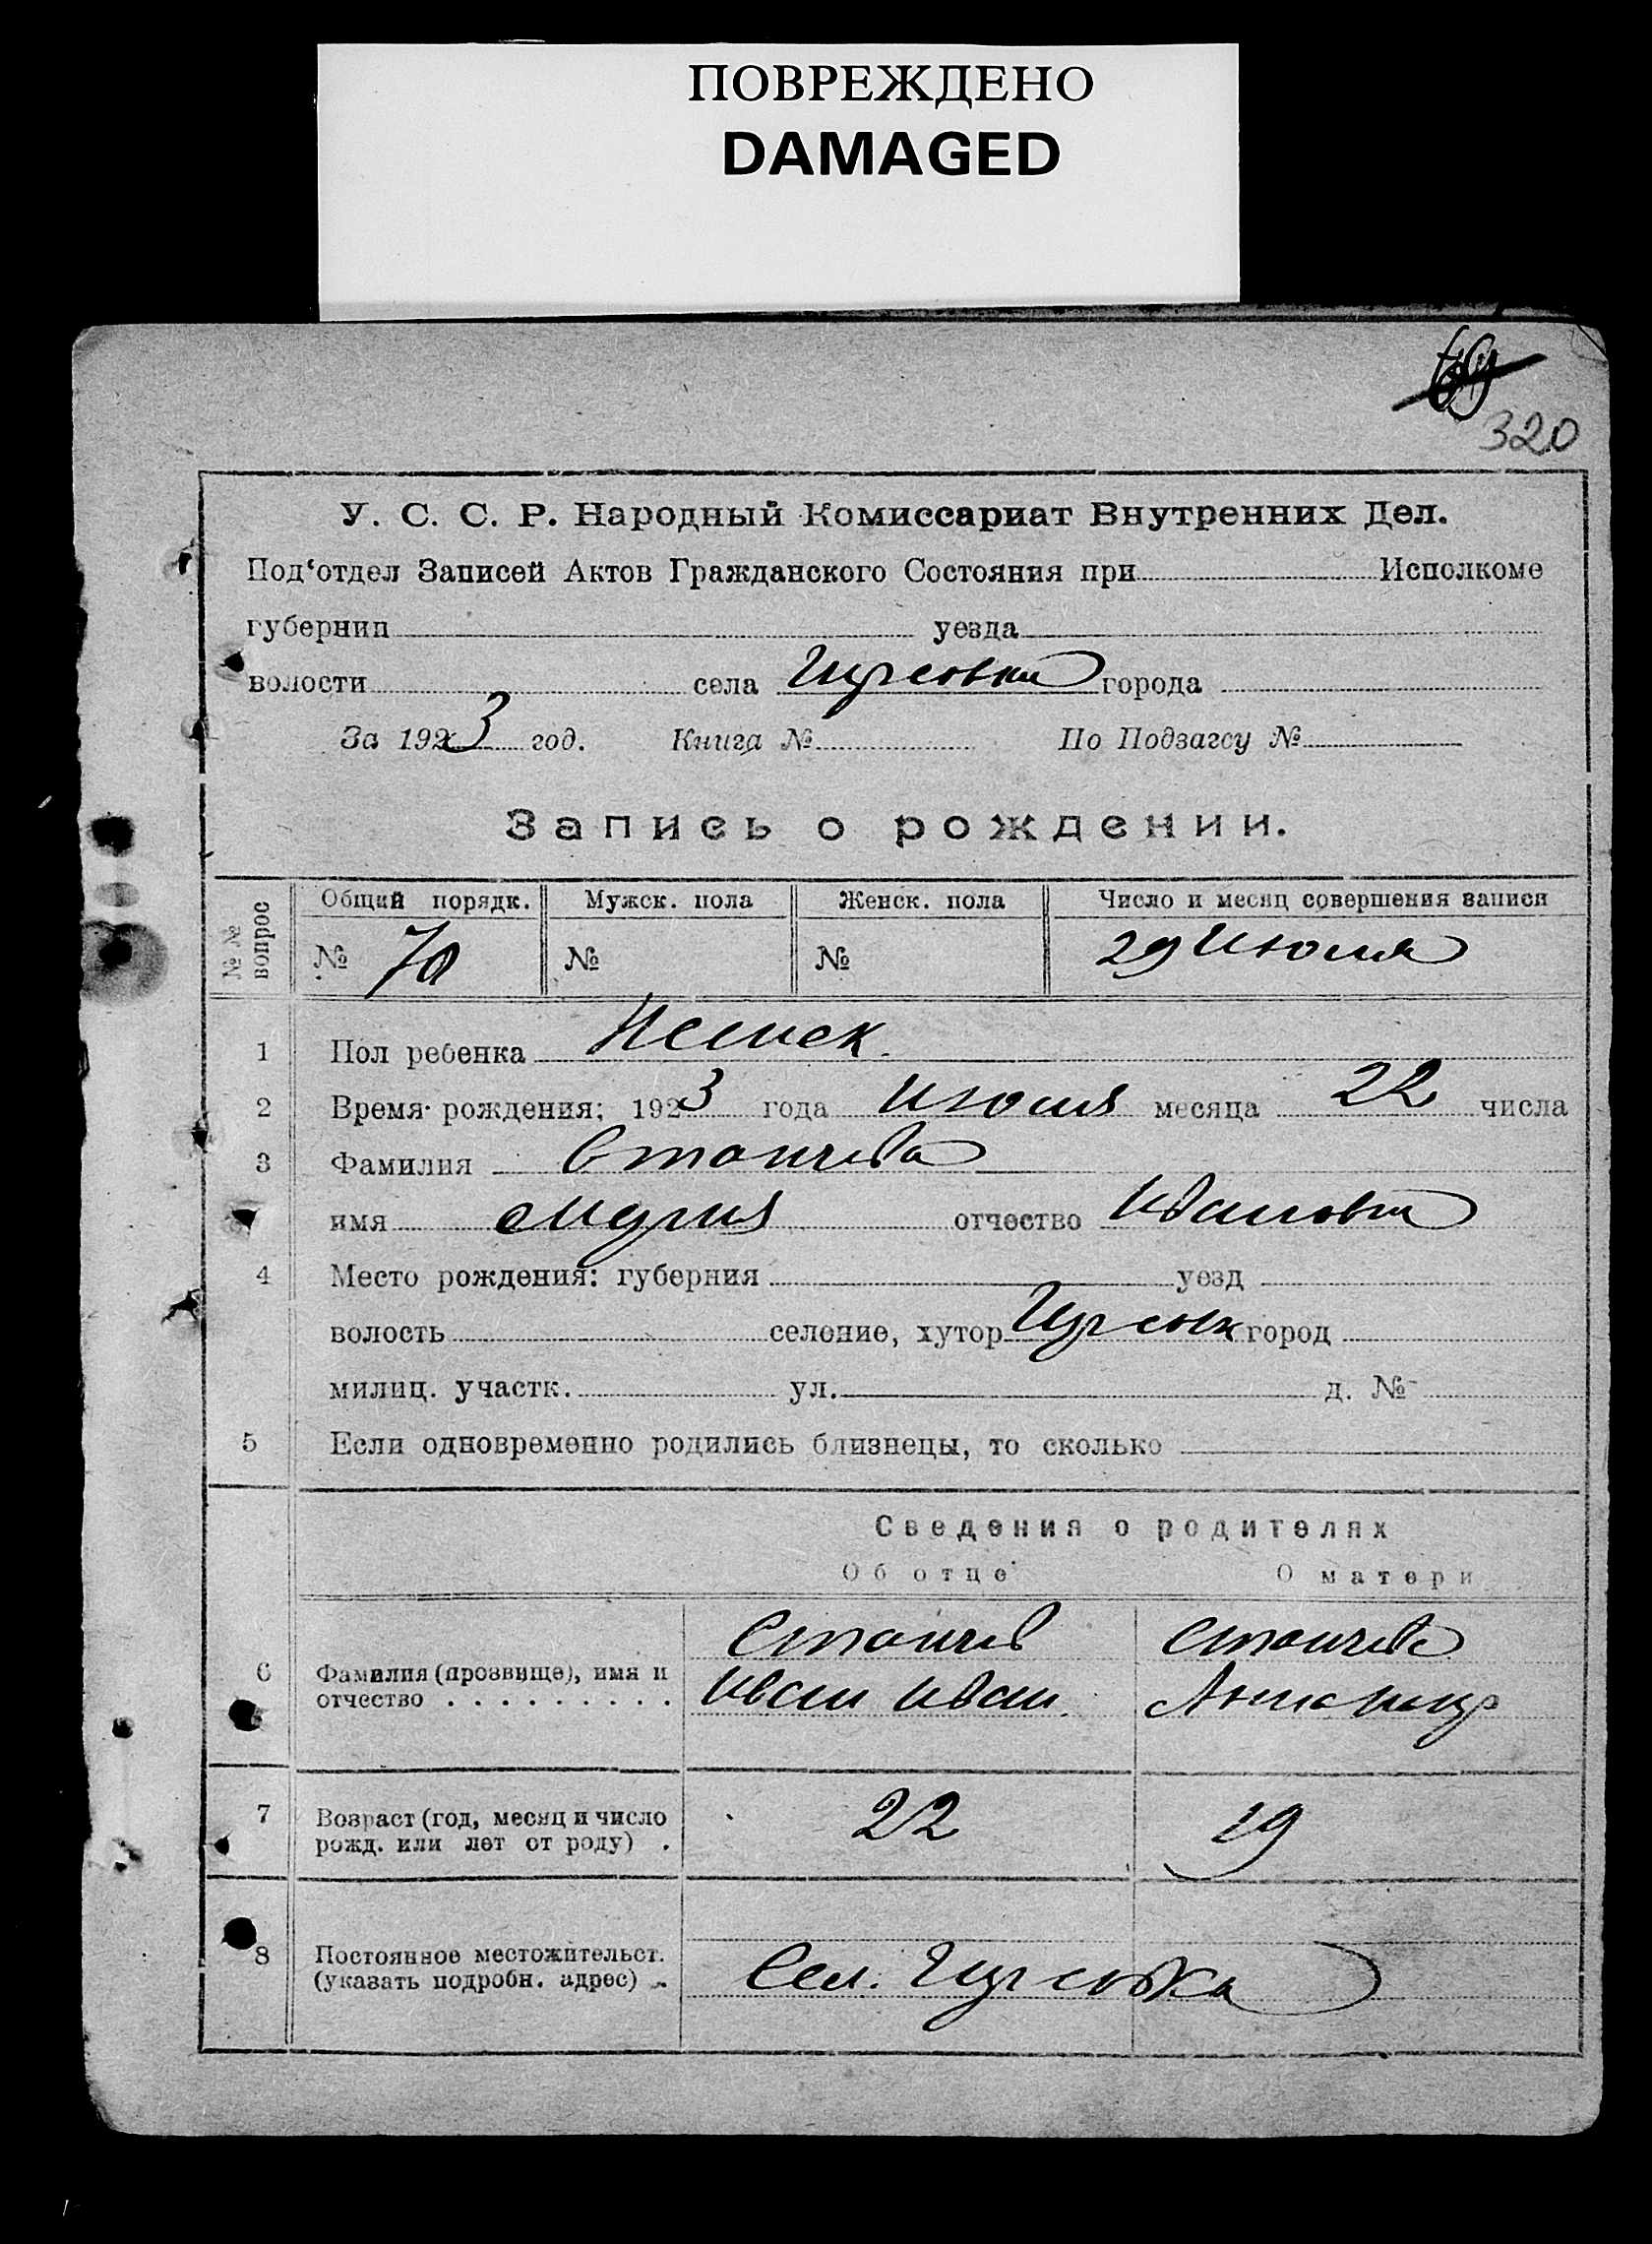 ПОВРЕЖДЕНО
DAMAGED
69
320
У. С. С. Р. Народный Комиссариат Внутренних Дел.
Под‘отдел Записей Актов Гражданского Состояния при Исполкоме
губернии уезда
волости села города
За 1923 год. Книга № По Подзагсу №
Запись о рождении.
№№ вопрос Общий порядк. Мужск. пола Женск. пола Число и месяц совершения записи
№ 70 № № 29 Июля
1 Пол ребенка Женск.
2 Время рождения: 1923 года Июля месяца 22 числа
3 Фамилия Стоичева
имя Мария отчество Ивановна
4 Место рождения: губерния уезд
волость селение, хутор город
милиц. участк. ул. д. №
5 Если одновременно родились близнецы, то сколько
Сведения о родителях
Об отце О матери
6 Фамилия (прозвище), имя и отчество Стоичев Стоичева
Иван Иван. Анна
7 Возраст (год, месяц и число рожд. или лет от роду) . 22 19
8 Постоянное местожительст. (указать подробн. адрес) Сел.